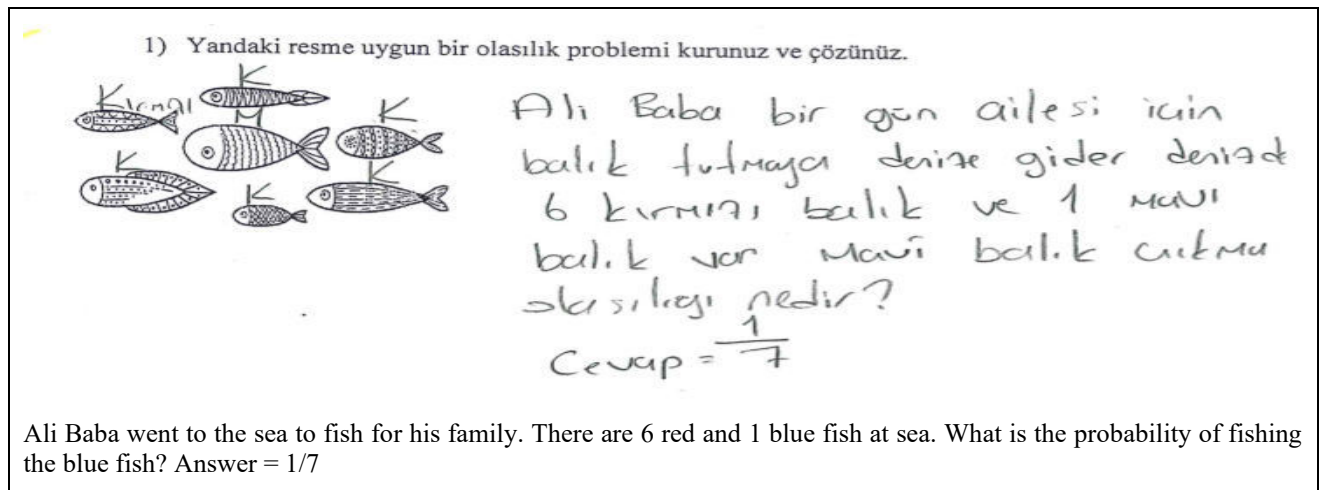 1) Yandaki resme uygun bir olasılık problemi kurunuz ve çözünüz.
K
Kırmızı
M
K
K
K
K
Ali Baba bir gün ailesi için
balık tutmaya denize gider denizde
6 kırmızı balık ve 1 mavi
balık var mavi balık çıkma
olasılığı nedir?
Cevap = 1/7
Ali Baba went to the sea to fish for his family. There are 6 red and 1 blue fish at sea. What is the probability of fishing
the blue fish? Answer = 1/7